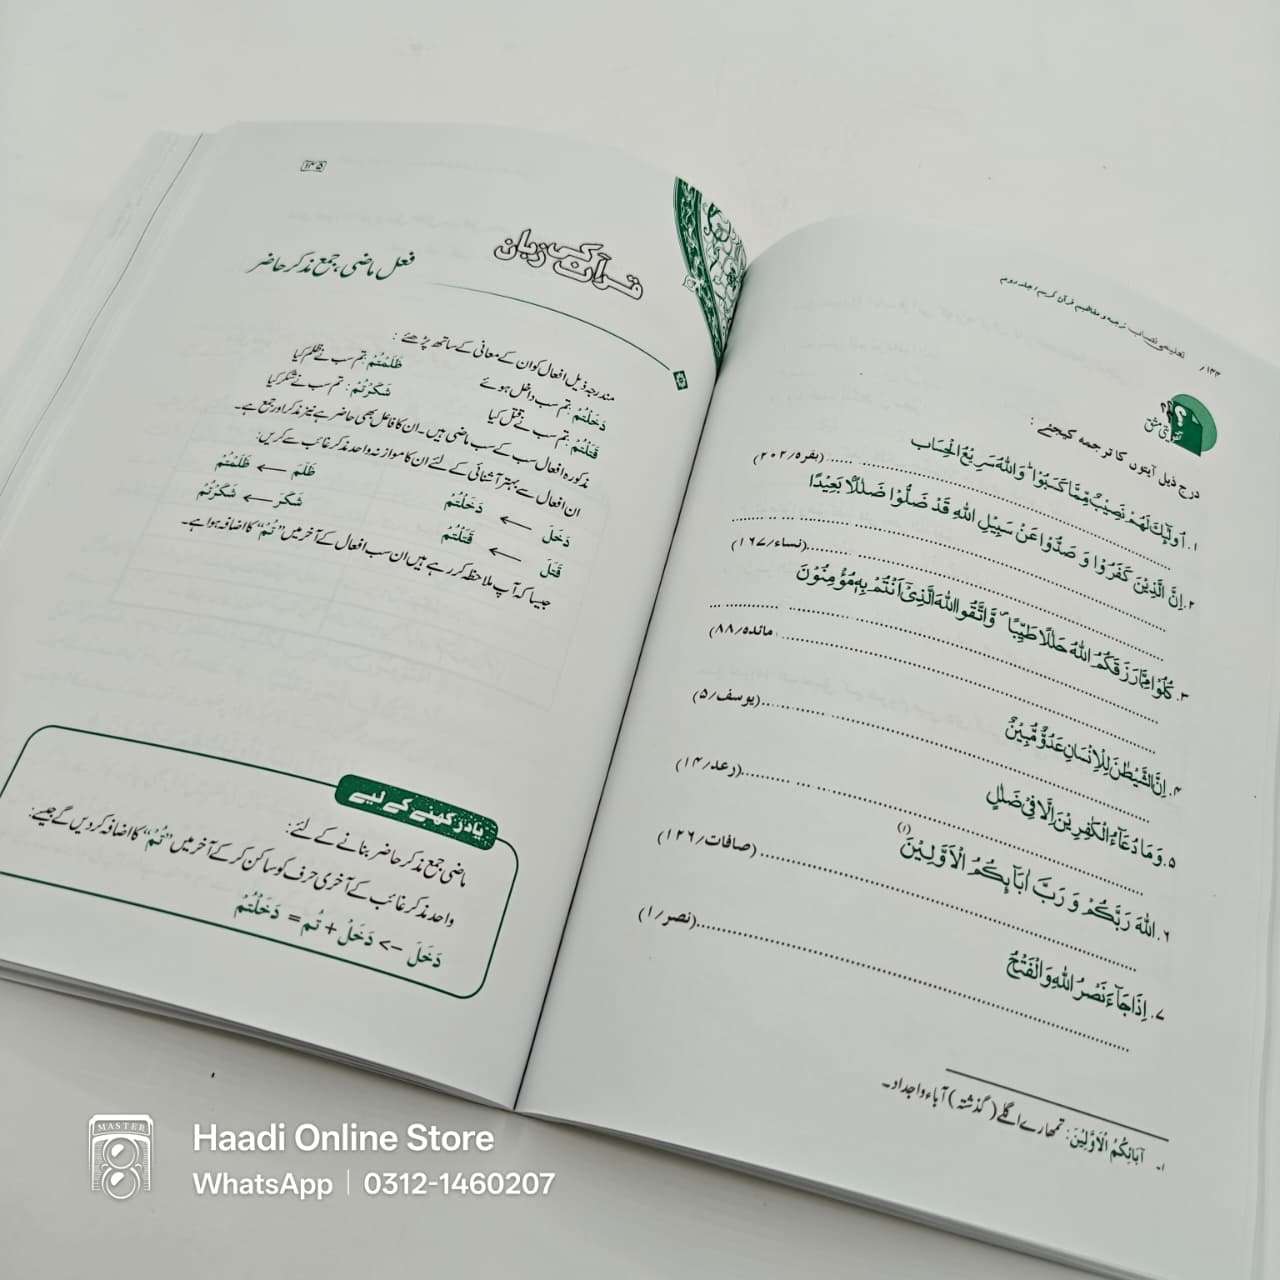 ۱۴۴/ تعلیمی نصاب ترجمہ و مفاہیم قرآن کریم / جلد دوم
تمرینی مشق
درج ذیل آیتوں کا ترجمہ کیجئے :
۱. اُولٰٓئِكَ لَهُمْ نَصِيْبٌ مِّمَّا كَسَبُوْا ؕ وَاللّٰهُ سَرِيْعُ الْحِسَاب
(بقرہ/۲۰۲)
۲. اِنَّ الَّذِيْنَ كَفَرُوْا وَ صَدُّوْا عَنْ سَبِيْلِ اللّٰهِ قَدْ ضَلُّوْا ضَلٰلًۢا بَعِيْدًا
(نساء/۱۶۷)
۳. كُلُوْا مِمَّا رَزَقَكُمُ اللّٰهُ حَلٰلًا طَيِّبًا ۪ وَّاتَّقُوا اللّٰهَ الَّذِيْۤ اَنْتُمْ بِهٖ مُؤْمِنُوْنَ
(مائدہ/۸۸)
۴. اِنَّ الشَّيْطٰنَ لِلْاِنْسَانِ عَدُوٌّ مُّبِيْنٌ
(یوسف/۵)
۵. وَمَا دُعَآءُ الْكٰفِرِيْنَ اِلَّا فِيْ ضَلٰلٍ
(رعد/۱۴)
۶. اللّٰهَ رَبَّكُمْ وَ رَبَّ اٰبَآىِٕكُمُ الْاَوَّلِيْنَ (۱)
(صافات/۱۲۶)
۷. اِذَا جَآءَ نَصْرُ اللّٰهِ وَالْفَتْحُ
(نصر/۱)
۱۔ آبَائِكُمُ الْاَوَّلِيْنَ: تمھارے اگلے (گذشتہ) آباء واجداد۔
۱۴۵
قرآن کی زبان
فعل ماضی، جمع مذکر حاضر
مندرجہ ذیل افعال کو ان کے معانی کے ساتھ پڑھئے :
دَخَلْتُمْ: تم سب داخل ہوئے ظَلَمْتُمْ: تم سب نے ظلم کیا
قَتَلْتُمْ: تم سب نے قتل کیا شَكَرْتُمْ: تم سب نے شکر کیا
مذکورہ افعال سب کے سب ماضی ہیں۔ ان کا فاعل بھی حاضر ہے نیز مذکر اور جمع ہے۔
ان افعال سے بہتر آشنائی کے لئے ان کا موازنہ واحد مذکر غائب سے کریں:
دَخَلَ ← دَخَلْتُمْ ظَلَمَ ← ظَلَمْتُمْ
قَتَلَ ← قَتَلْتُمْ شَكَرَ ← شَكَرْتُمْ
جیسا کہ آپ ملاحظہ کر رہے ہیں ان سب افعال کے آخر میں "تُمْ" کا اضافہ ہوا ہے۔
یاد رکھنے کے لیے
ماضی جمع مذکر حاضر بنانے کے لئے:
واحد مذکر غائب کے آخری حرف کو ساکن کر کے آخر میں "تُمْ" کا اضافہ کر دیں گے جیسے:
دَخَلَ -> دَخَلْ + تُم = دَخَلْتُمْ
MASTER
Haadi Online Store
WhatsApp | 0312-1460207